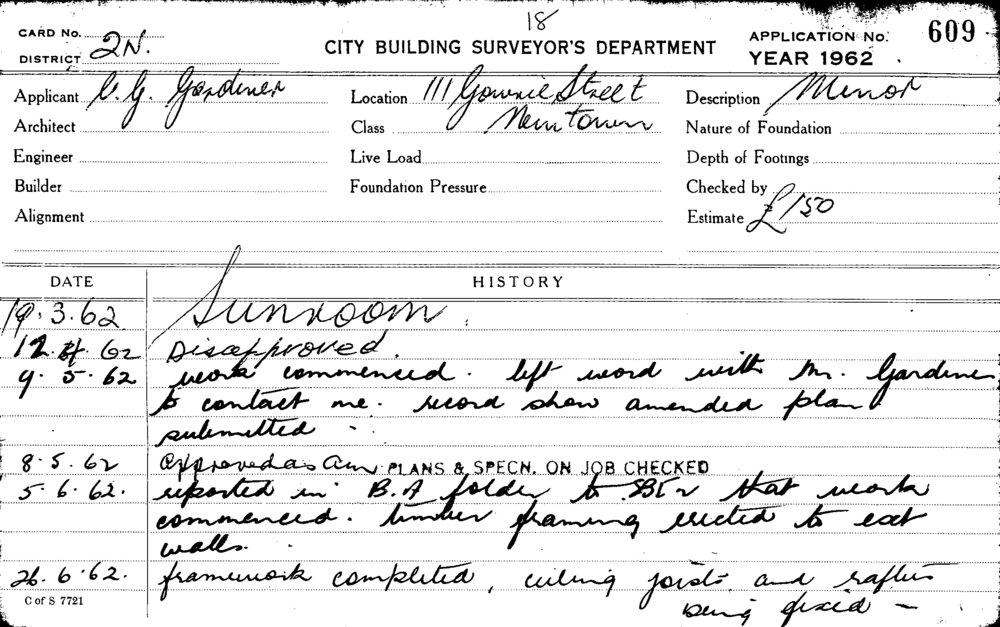 18
CARD No. 2N.
DISTRICT
CITY BUILDING SURVEYOR'S DEPARTMENT
APPLICATION No. 609
YEAR 1962
Applicant C. G. Gardiner
Location 111 Gowrie Street
Description Minor
Architect
Class Newtown
Nature of Foundation
Engineer
Live Load
Depth of Footings
Builder
Foundation Pressure
Checked by
Alignment
Estimate £150
DATE HISTORY
19.3.62 Sunroom.
12.4.62 Disapproved.
9.5.62 work commenced. left word with Mr. Gardiner
to contact me. record show amended plan
submitted -
8.5.62 Approved as Am PLANS & SPECN. ON JOB CHECKED
5.6.62. reported in B.A folder to that work
commenced. timber framing erected to ext
walls.
26.6.62. framework completed, ceiling joists and rafters
being fixed -
C of S 7721